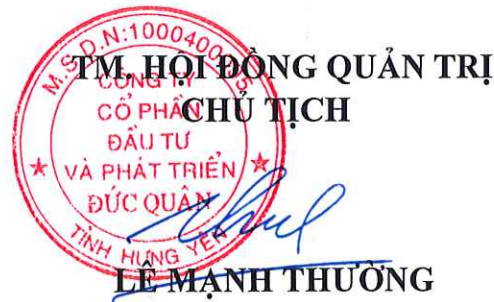 TM. HỘI ĐỒNG QUẢN TRỊ
CHỦ TỊCH
CÔNG TY
CỔ PHẦN
ĐẦU TƯ
VÀ PHÁT TRIỂN
ĐỨC QUÂN
TỈNH HƯNG YÊN
LÊ MẠNH THƯỜNG